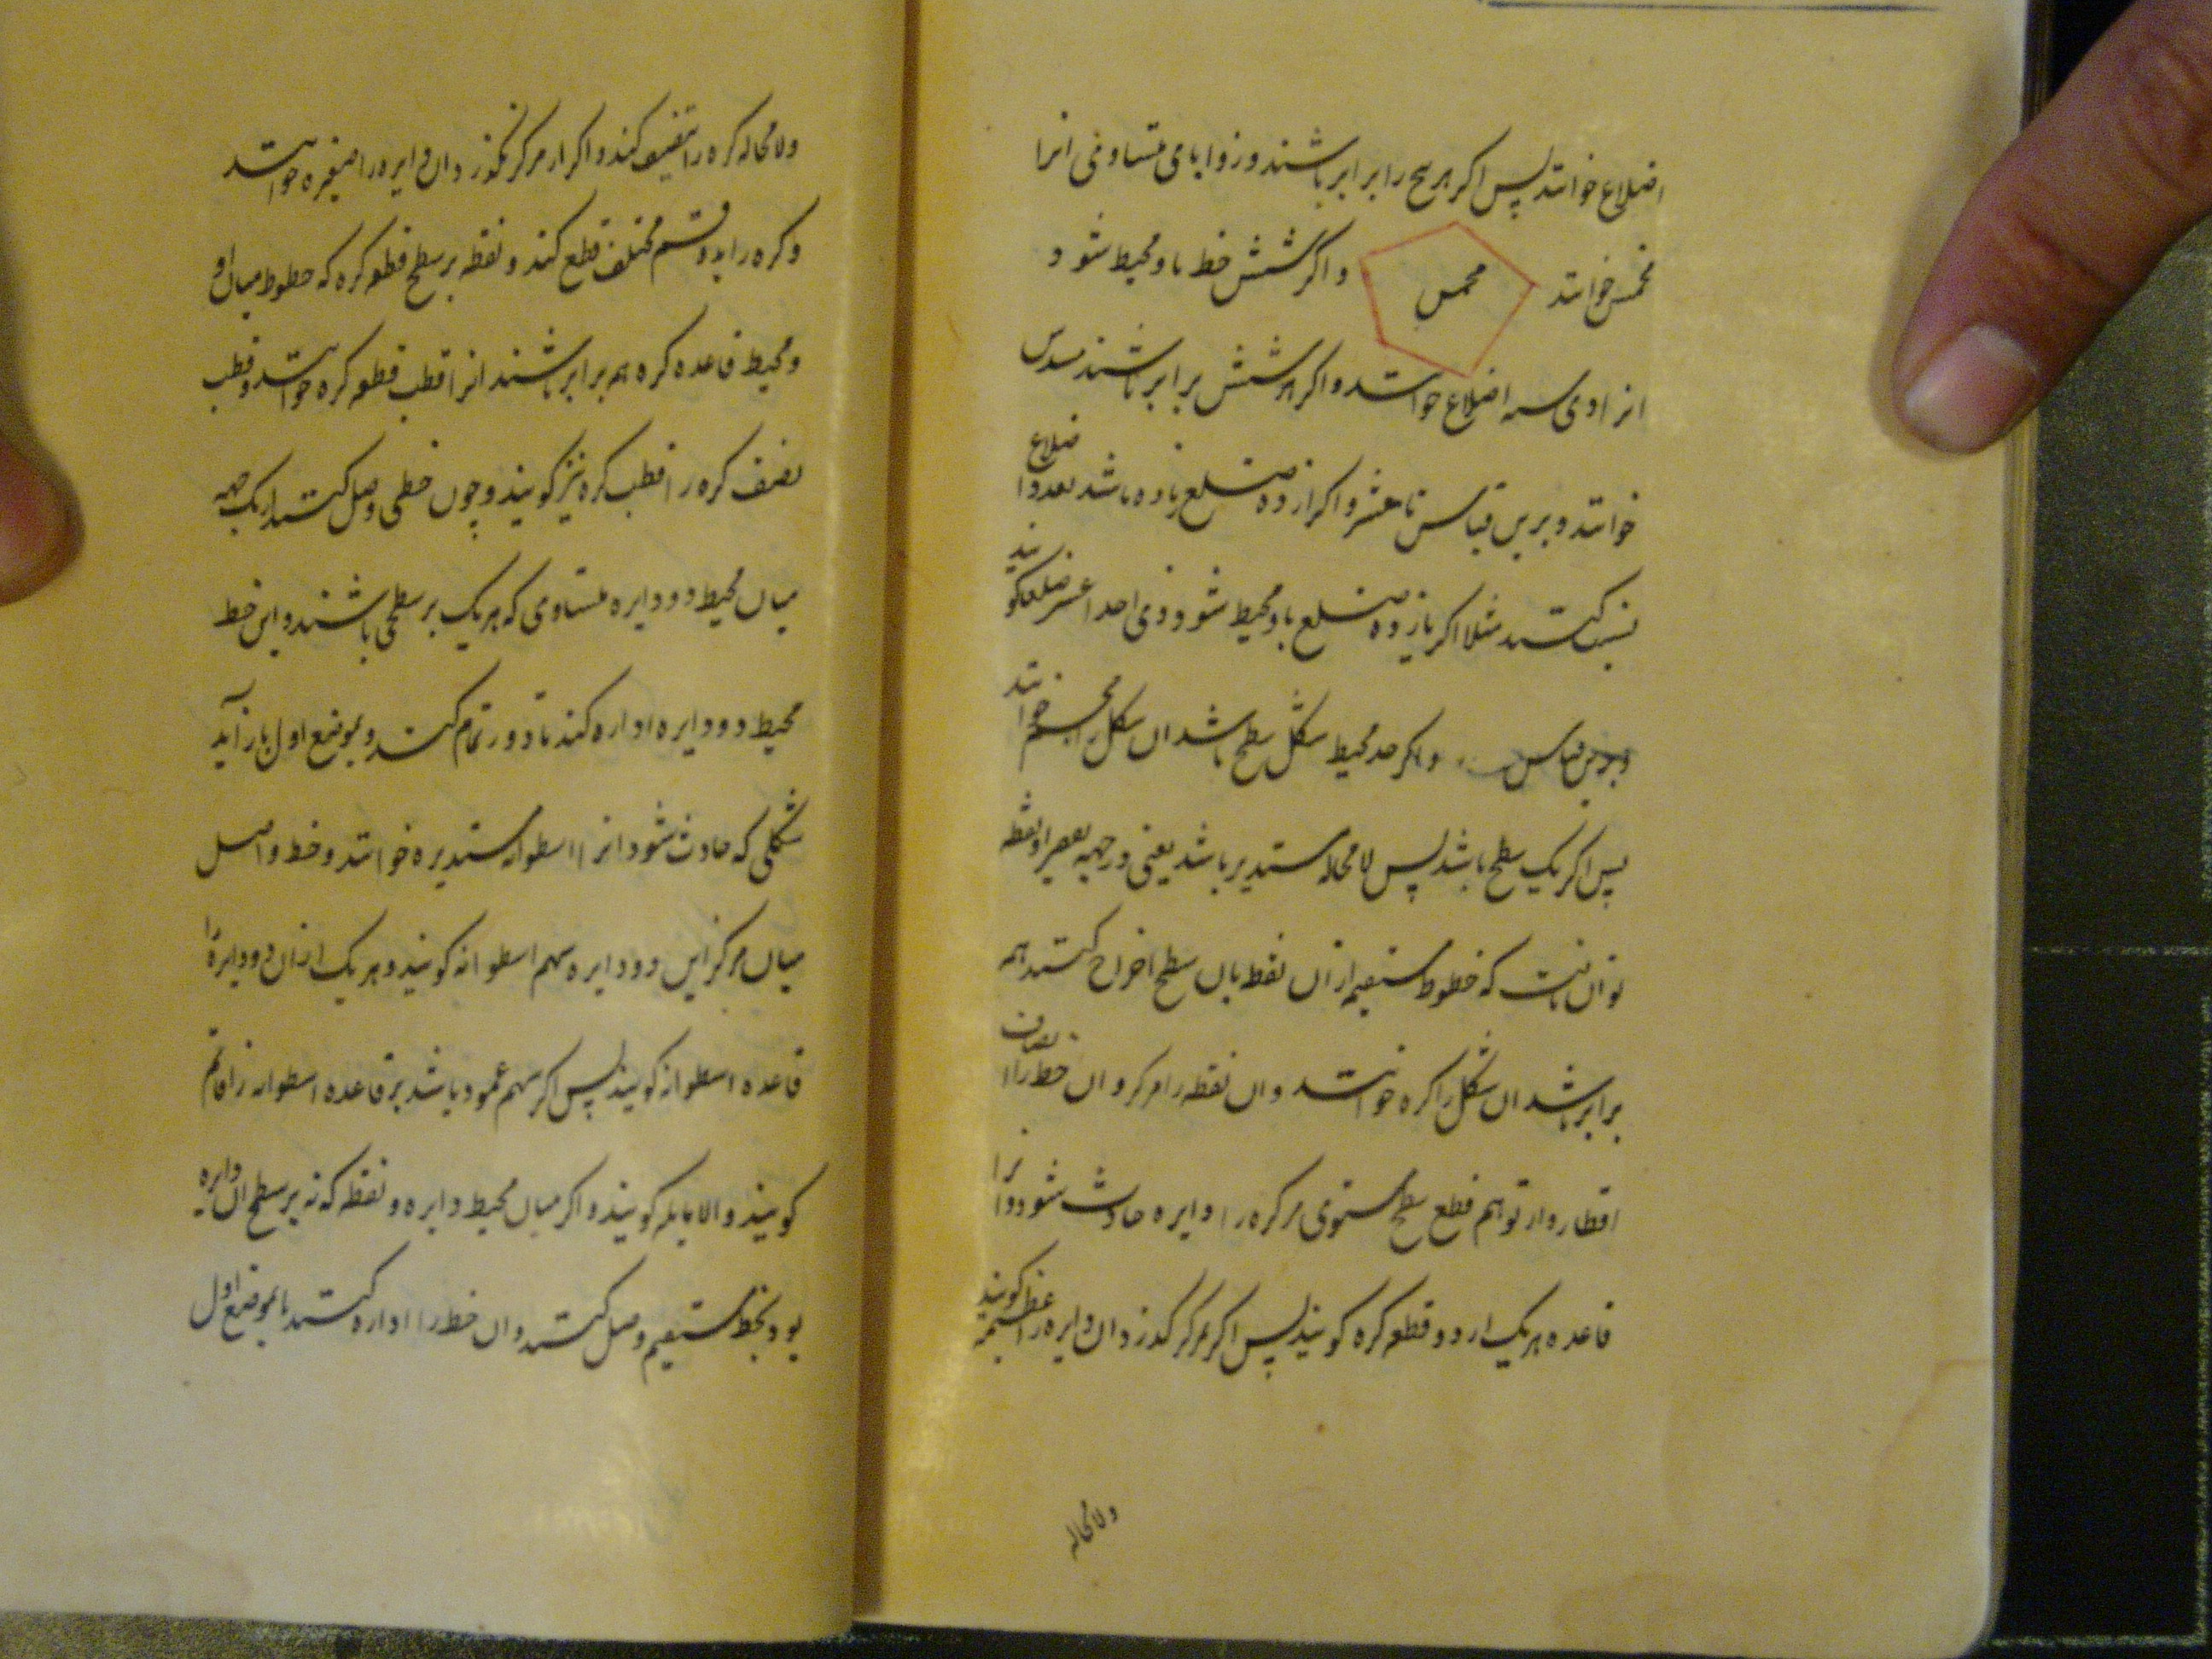 اضلاع خوانند پس اگر هر پنج برابر باشند و زوایای متساوی انرا
مخمس خوانند مخمس و اگر شش خط باو محیط شود
انرا ذی سته اضلاع خوانند و اگر هر شش برابر باشند مسدس
خوانند و برین قیاس تا عشر و اگر از ده ضلع زیاده باشد بعدد اضلاع
نسبت کنند مثلا اگر یازده ضلع باو محیط شود ذی احد عشر ضلعا گویند
و برین قیاس و اگر حد محیط بشکل سطح باشد ان شکل را مجسم خوانند
پس اگر یک سطح باشد پس لامحاله مستدیر باشد یعنی در جهة نقطه
توان یافت که خطوط مستقیم از ان نقطه بان سطح اخراج کنند همه
برابر باشد ان شکل را کره خوانند و ان نقطه را مرکز و ان خط را انصاف
اقطار و از توهم قطع سطح مستوی مر کره را دایره حادث شود و انرا
قاعده هر یک از دو قطعه کره گویند پس اگر بمرکز گذرد ان دایره را عظیمه گویند
ولامحاله
ولامحاله کره را تنصیف کند و اگر از مرکز نگذرد ان دایره را صغیره خوانند
و کره را بدو قسم مختلف قطع کند و نقطه بر سطح قطعه کره که خطوط میان او
و محیط قاعده کره همه برابر باشند انرا قطب قطعه کره خوانند و قطب
نصف کره را قطب کره نیز گویند و چون خطی وصل کنند از یک جهه
میان محیط دو دایره متساوی که هر یک بر سطحی باشند و این خط
محیط دو دایره اداره کند تا دور تمام کند و بموضع اول باز آید
شکلی که حادث شود انرا اسطوانه مستدیره خوانند و خط واصل
میان مرکز این دو دایره سهم اسطوانه گویند و هر یک از ان دو دایره را
قاعده اسطوانه گویند پس اگر سهم عمود باشد بر قاعده اسطوانه را قائم
گویند و الا مایله گویند و اگر میان محیط دایره و نقطه که نه بر سطح ان دایره
بود بخط مستقیم وصل کنند و ان خط را اداره کنند تا بموضع اول